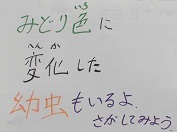 みどり色に
変化した
幼虫もいるよ。
さがしてみよう